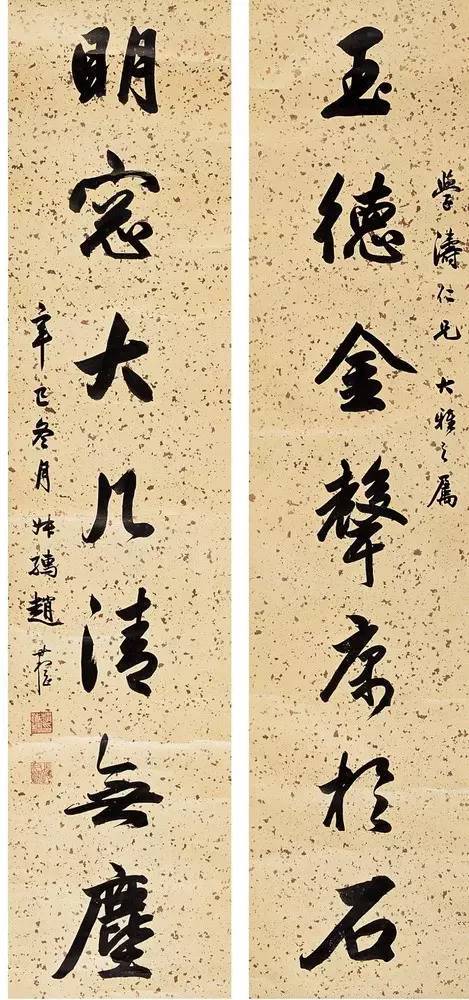 學濤仁兄大雅之屬
玉德金聲庽於石
明窓大几清無塵
辛巳冬月叔孺趙時棡